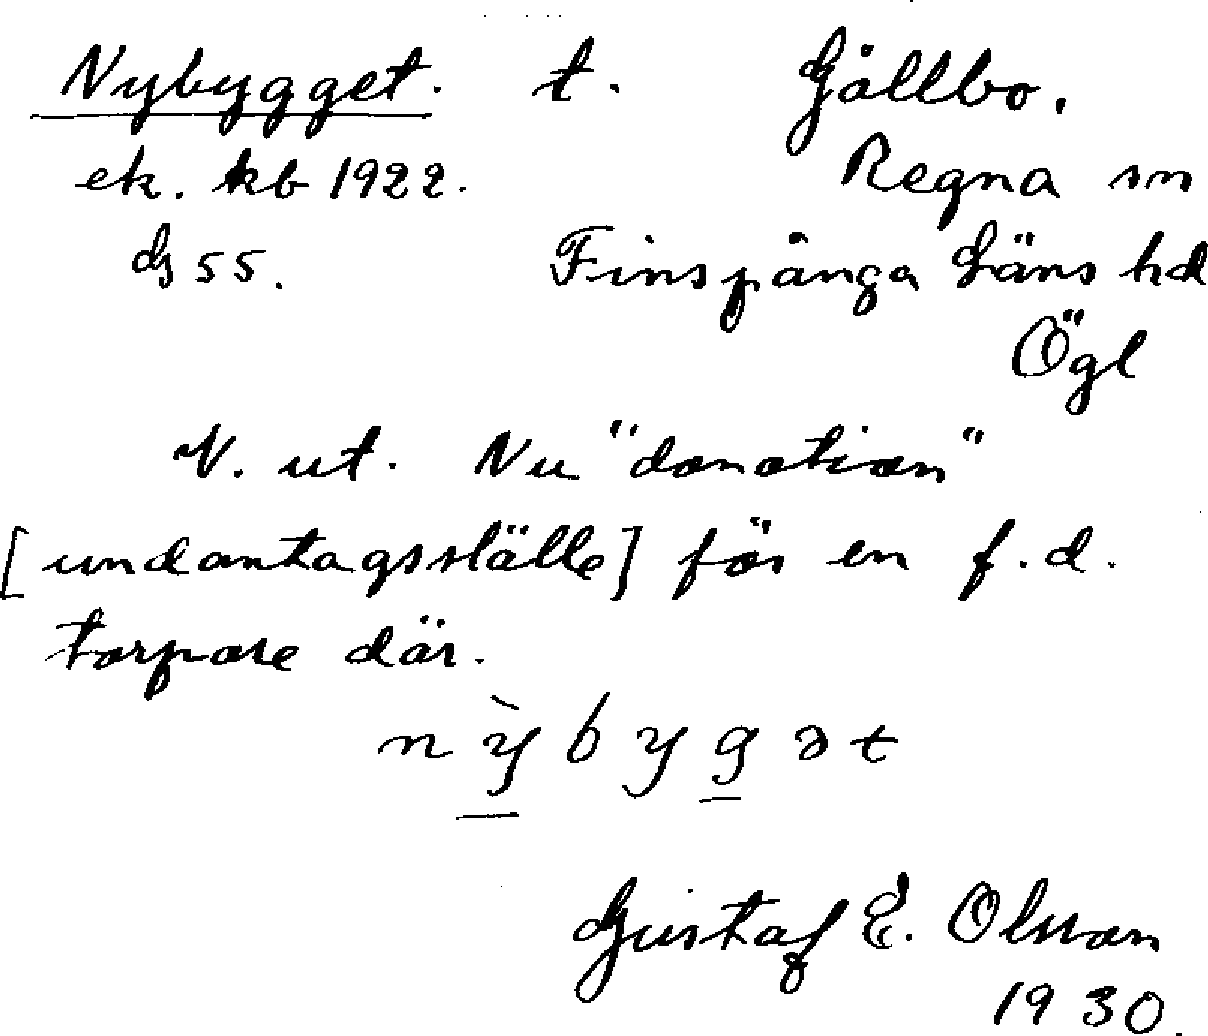 Nybygget. t. Gållbo.
ek. kb 1922. Regna sn
ds 55. Finspånga Läns hd
Ögl
V. ut. Nu "donation"
[undantagsställe] för en f.d.
torpare där.
nỳbygət
Gustaf E. Olsson
1930.